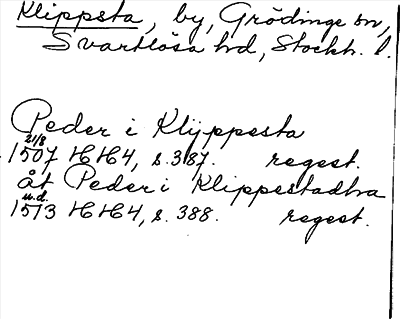 Klippsta, by, Grödinge sn,
Svartlösa hd, Stockh. l.
Peder i Klÿppesta
21/8
1507 HH4, s. 387. regest.
åt Peder i Klippestadha
u.d.
1513 HH4, s. 388. regest.